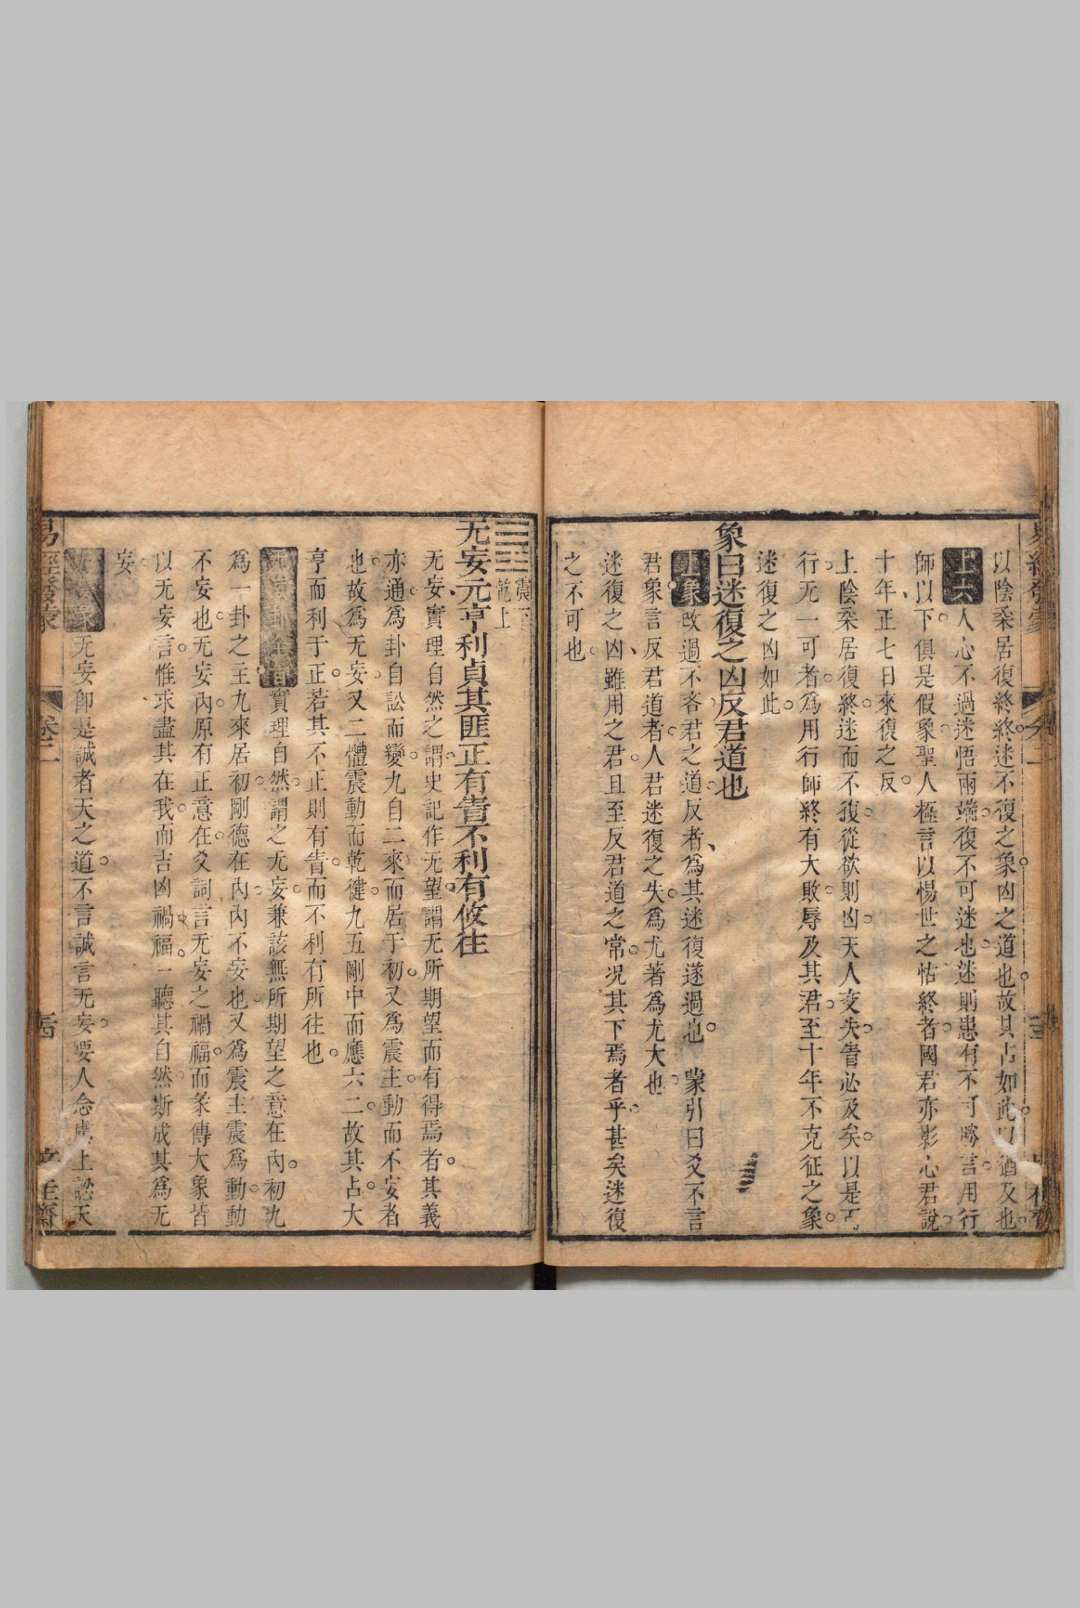 以陰柔居復終終迷不復之象凶之道也故其占如此以猶及也
上六人心不過迷悟兩端復不可迷也迷則患有不可勝言用行
師以下俱是假象聖人極言以惕世之怙終者國君亦影心君說
十年正七日來復之反
上陰柔居復終迷而不復從欲則凶天人交失眚必及矣以是而
行无一可者為用行師終有大敗辱及其君至十年不克征之象
迷復之凶如此
象曰迷復之凶反君道也
上象改過不吝君之道反者為其迷復遂過也 蒙引曰爻不言
君象言反君道者人君迷復之失為尤著為尤大也
迷復之凶雖用之君且至反君道之常况其下焉者乎甚矣迷復
之不可也
震下
乾上
无妄元亨利貞其匪正有眚不利有攸往
无妄實理自然之謂史記作无望謂无所期望而有得焉者其義
亦通為卦自訟而變九自二來而居于初又為震主動而不妄者
也故為无妄又二體震動而乾健九五剛中而應六二故其占大
亨而利于正若其不正則有眚而不利有所往也
无妄卦全旨實理自然謂之无妄兼該無所期望之意在內初九
為一卦之主九來居初剛德在內內不妄也又為震主震為動動
不妄也无妄內原有正意在爻詞言无妄之禍福而彖傳大象皆
以无妄言惟求盡其在我而吉凶禍福一聽其自然斯成其為无
妄
无妄即是誠者天之道不言誠言无妄要人念慮上認天
易經發蒙
卷二
文奎齋